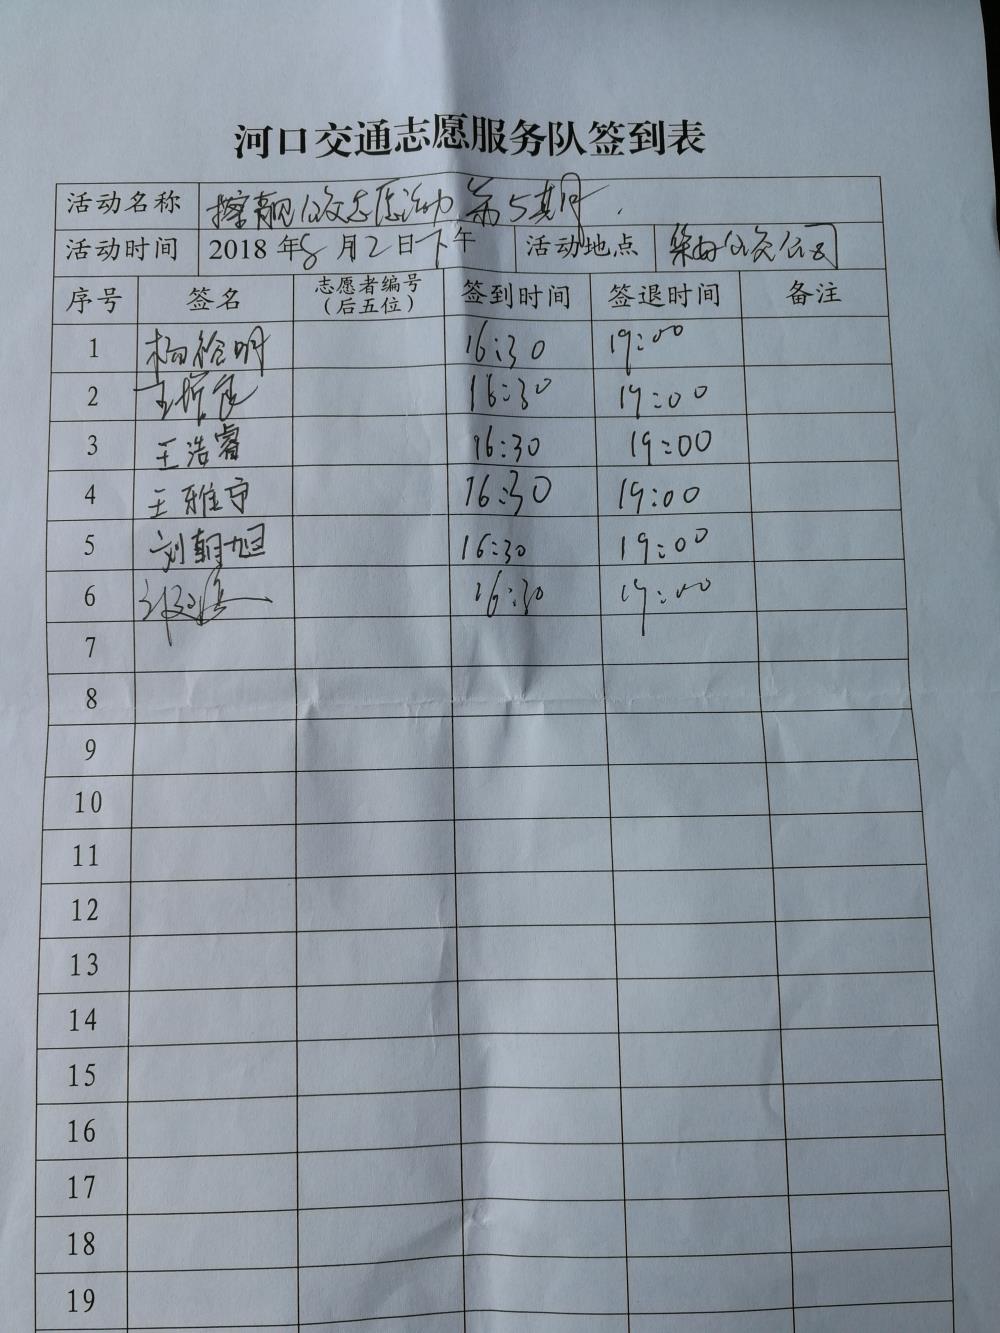 河口交通志愿服务队签到表
活动名称 擦靓公交志愿活动 第5期
活动时间 2018年8月2日下午 活动地点 公交公司
序号 签名 志愿者编号（后五位） 签到时间 签退时间 备注
1 杨裕明 16:30 19:00
2 16:30 19:00
3 王浩睿 16:30 19:00
4 王雅宁 16:30 19:00
5 刘朝旭 16:30 19:00
6 16:30 19:00
7
8
9
10
11
12
13
14
15
16
17
18
19